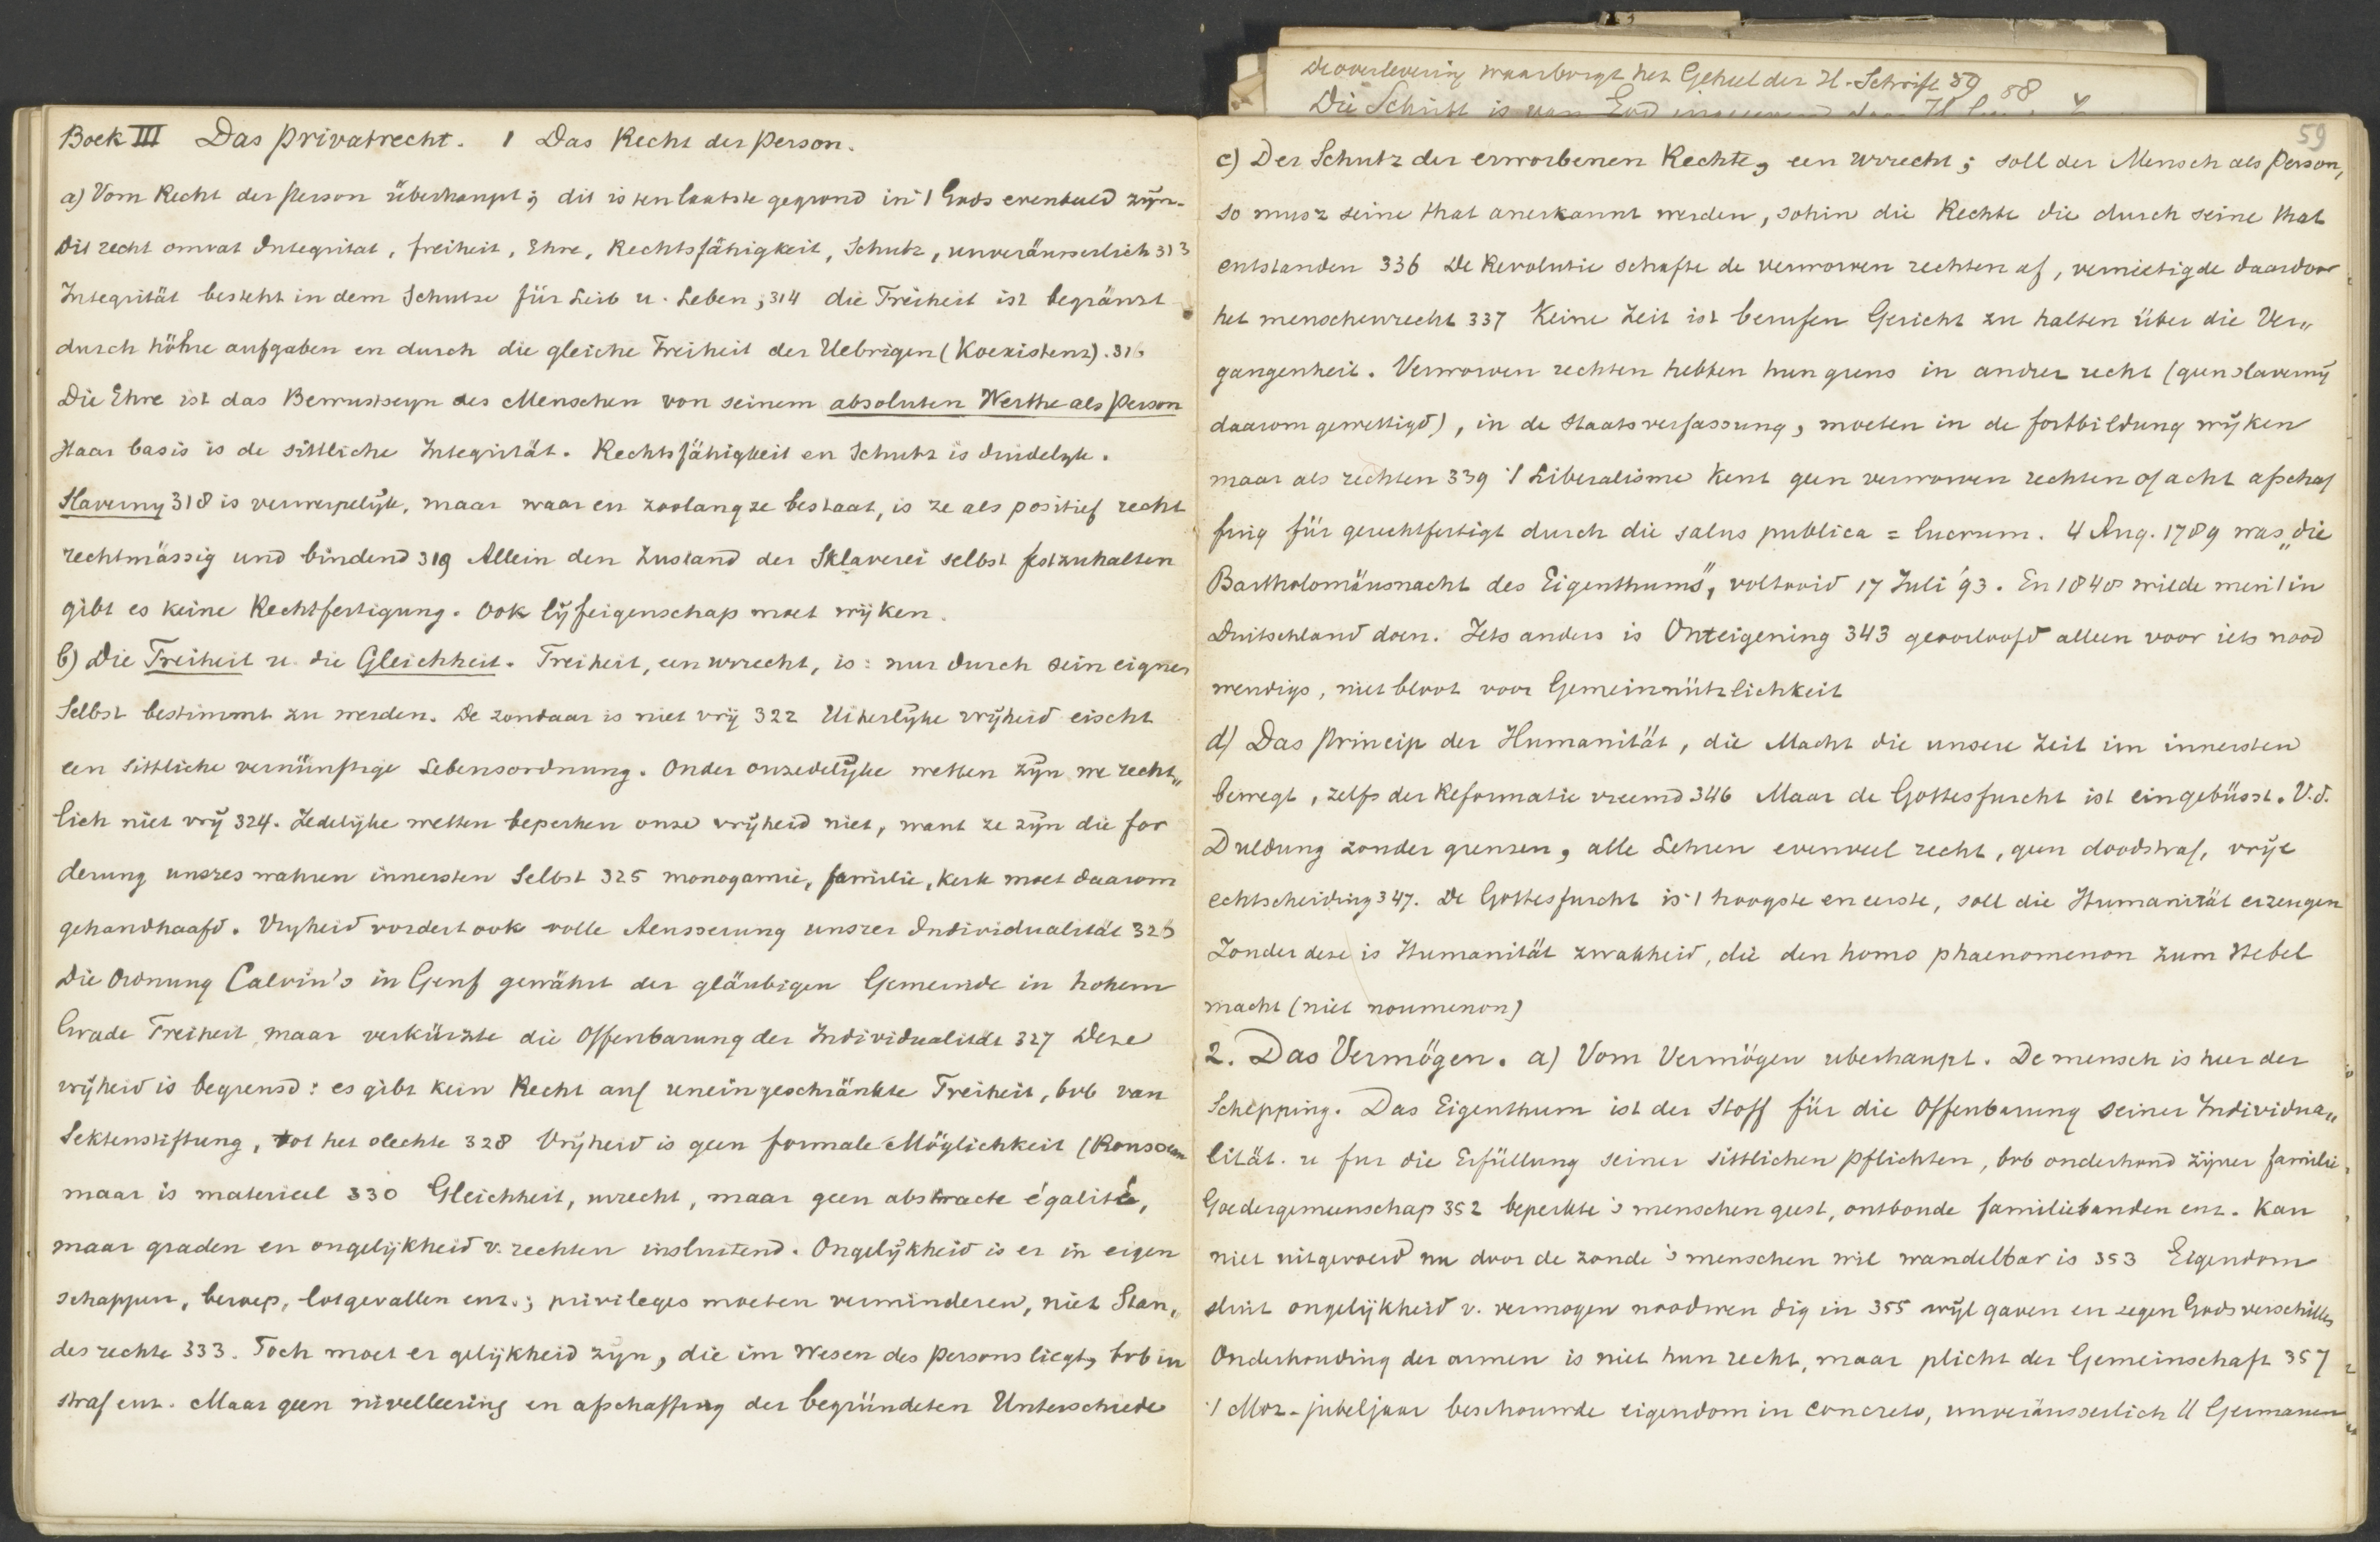 Boek III Das Privatrecht. 1 Das Recht der Person.
a) Vom Recht der Person überhaupt; dit is ten laatste gegrond in 't Gods evenbeeld zijn.
Dit recht omvat Integritat, freiheit, Ehre, Rechtsfähigkeit, Schutz, unveräusserlich 313
Integrität besteht in dem Schutze für Leib u. Leben; 314 die Freiheit ist begränzt
durch höhre aufgaben en durch die gleiche Freiheit der Uebrigen (Koexistenz). 316
Die Ehre ist das Bewustseyn des Menschen von seinem absoluten Werthe als Person
Haar basis is de sittliche Integrität. Rechtsfähigkeit en Schutz is duidelyk.
Slaverny 318 is verwerpelijk, maar waar en zoolang ze bestaat, is ze als positief recht
rechtmässig und bindend 319 Allein den Zustand der Sklaverei selbst festzuhalten
gibt es keine Rechtfertigung. Ook lijfeigenschap moet wijken.
b) Die Freiheit u. die Gleichheit. Freiheit, een urrecht, is: nur durch sein eignes
Selbst bestimmt zu werden. De zondaar is niet vrij 322 Uiterlijke vrijheid eischt
een sittliche vernünftige Lebensordnung. Onder onzedelijke wetten zijn we recht„
lich niet vrij 324. Zedelijke wetten beperken onze vrijheid niet, want ze zijn die for
derung unsres wahren innersten Selbst 325 monogamie, familie, kerk moet daarom
gehandhaafd. Vryheid vordert ook volle Aeusserung unsrer Individualität 326
Die Ordnung Calvin's in Genf gewährt der gläubigen Gemeinde in hohem
Grade Freiheit maar verkürzte die Offenbarung der Individualität 327 Deze
vrijheid is begrensd: es gibt kein Recht auf uneingeschränkte Freiheit, bvb van
Sektenstiftung, tot het slechte 328 Vrijheid is geen formale Möglichkeit (Rousseau
maar is materieel 330 Gleichheit, urrecht, maar geen abstracte égalité,
maar graden en ongelijkheid v. rechten insluitend. Ongelijkheid is er in eigen
schappen, beroep, lotgevallen enz.; privileges moeten verminderen, niet Stan„
des rechte 333. Toch moet er gelijkheid zijn, die im Wesen des Persons liegt, bvb in
straf enz. Maar geen nivelleering en afschaffing der begründeten Unterschiede
De overlevering waarborgt het Geheel der H. Schrift 59
58
Die Schrift is van God
59
c) Der Schutz der erworbenen Rechte, een urrecht; soll der Mensch als Person,
so musz seine that anerkannt werden, sohin die Rechte die durch seine that
entstanden 336 De Revolutie schafte de verworven rechten af, vernietigde daardoor
het menschenrecht 337 Keine Zeit ist berufen Gericht zu halten über die Ver„
gangenheit. Verworven rechten hebben hun grens in ander recht (geen slaverny
daarom gewettigd), in de Staatsverfassung, moeten in de fortbildung wijken
maar als rechten 339 't Liberalisme kent geen verworven rechten of acht afschaf
fing für gerechtfertigt durch die salus publica = lucrum. 4 Aug. 1789 was „die
Bartholomäusnacht des Eigenthums", voltooid 17 Juli '93. En 1848 wilde men 't in
Duitschland doen. Iets anders is Onteigening 343 geoorloofd alleen voor iets nood
wendigs, niet bloot voor Gemeinnützlichkeit
d) Das Princip der Humanität, die Macht die unsere Zeit im innersten
bewegt, zelfs der Reformatie vreemd 346 Maar de Gottesfurcht ist eingebüsst. V.d.
Duldung zonder grenzen, alle Lehren evenveel recht, geen doodstraf, vrije
echtscheiding 347. De Gottesfurcht is 't hoogste en eerste, soll die Humanität erzeugen
Zonder deze is Humanität zwakheid, die den homo phaenomenon zum Hebel
macht (niet noumenon)
2. Das Vermögen. a) Vom Vermögen uberhaupt. De mensch is heer der
Schepping. Das Eigenthum ist der Stoff für die Offenbarung seiner Individua„
lität. u fur die Erfüllung seiner sittlichen Pflichten, bvb onderhoud zijner familie.
Goedergemeenschap 352 beperkte 's menschen geest, ontbonde familiebanden enz. Kan
niet uitgevoerd nu door de zonde 's menschen wil wandelbar is 353 Eigendom
sluit ongelijkheid v. vermogen noodwen dig in 355 wijl gaven en zegen Gods verschillen
Onderhouding der armen is niet hun recht, maar plicht der Gemeinschaft 357
't Moz-jubeljaar beschouwde eigendom in concreto, unveräusserlich || Germanen